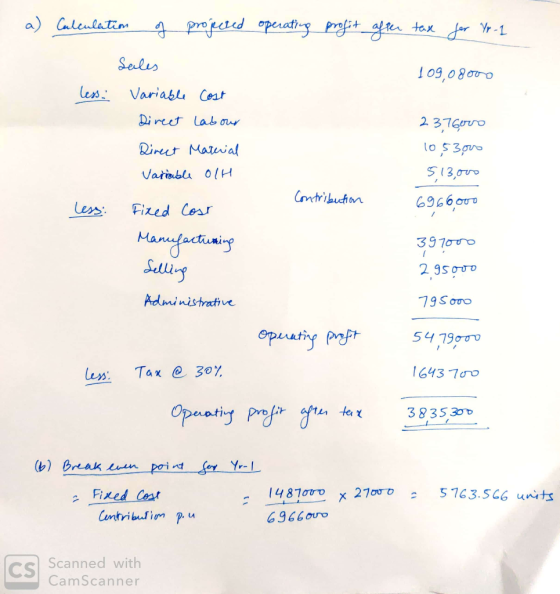 a) Calculation of projected operating profit after tax for Yr-1
Sales 109,08000
Less: Variable Cost
Direct Labour 2376000
Direct Material 10,53,000
Variable O/H 5,13,000
Contribution 6966000
Less: Fixed Cost
Manufacturing 397000
Selling 2,95000
Administrative 795000
Operating profit 54,79,000
Less: Tax @ 30% 1643700
Operating profit after tax 3835,300
(b) Break even point for Yr-1
= Fixed Cost / Contribution p.u = 1487000 / 6966000 × 27000 = 5763.566 units
CS Scanned with
CamScanner